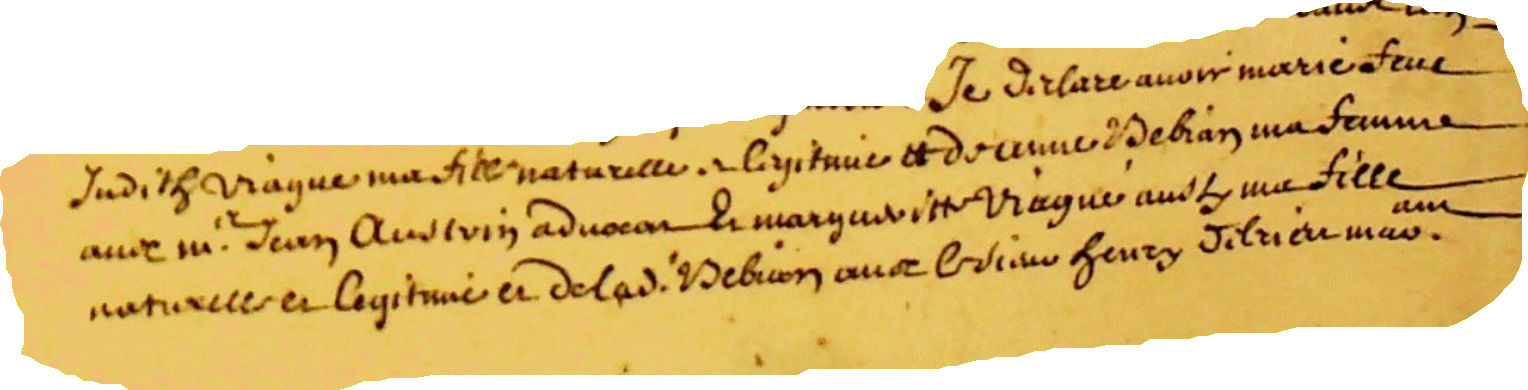 Je declare avoir marie feue
Judith Viague ma fille naturelle et legitime et de anne Debian ma femme
avec mr. Jean Austrin advocat Et margueritte Viague aussy ma fille
naturelle et legitime et de lad. Debian avec le sieur henry